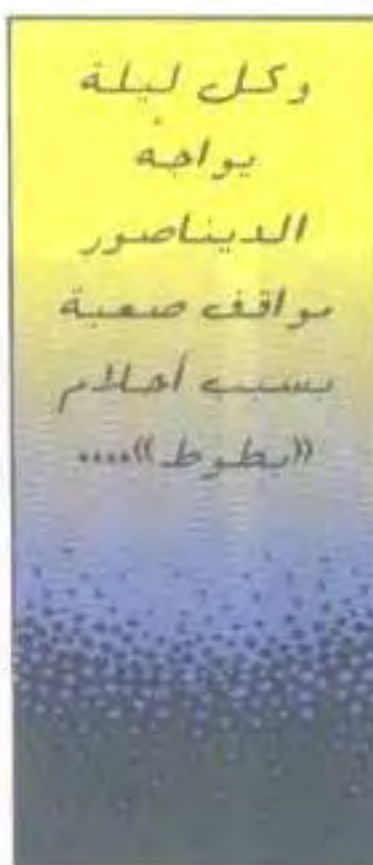 وكل ليلة
يواجه
الديناصور
مواقف صعبة
بسبب أحلام
«بطوط»....